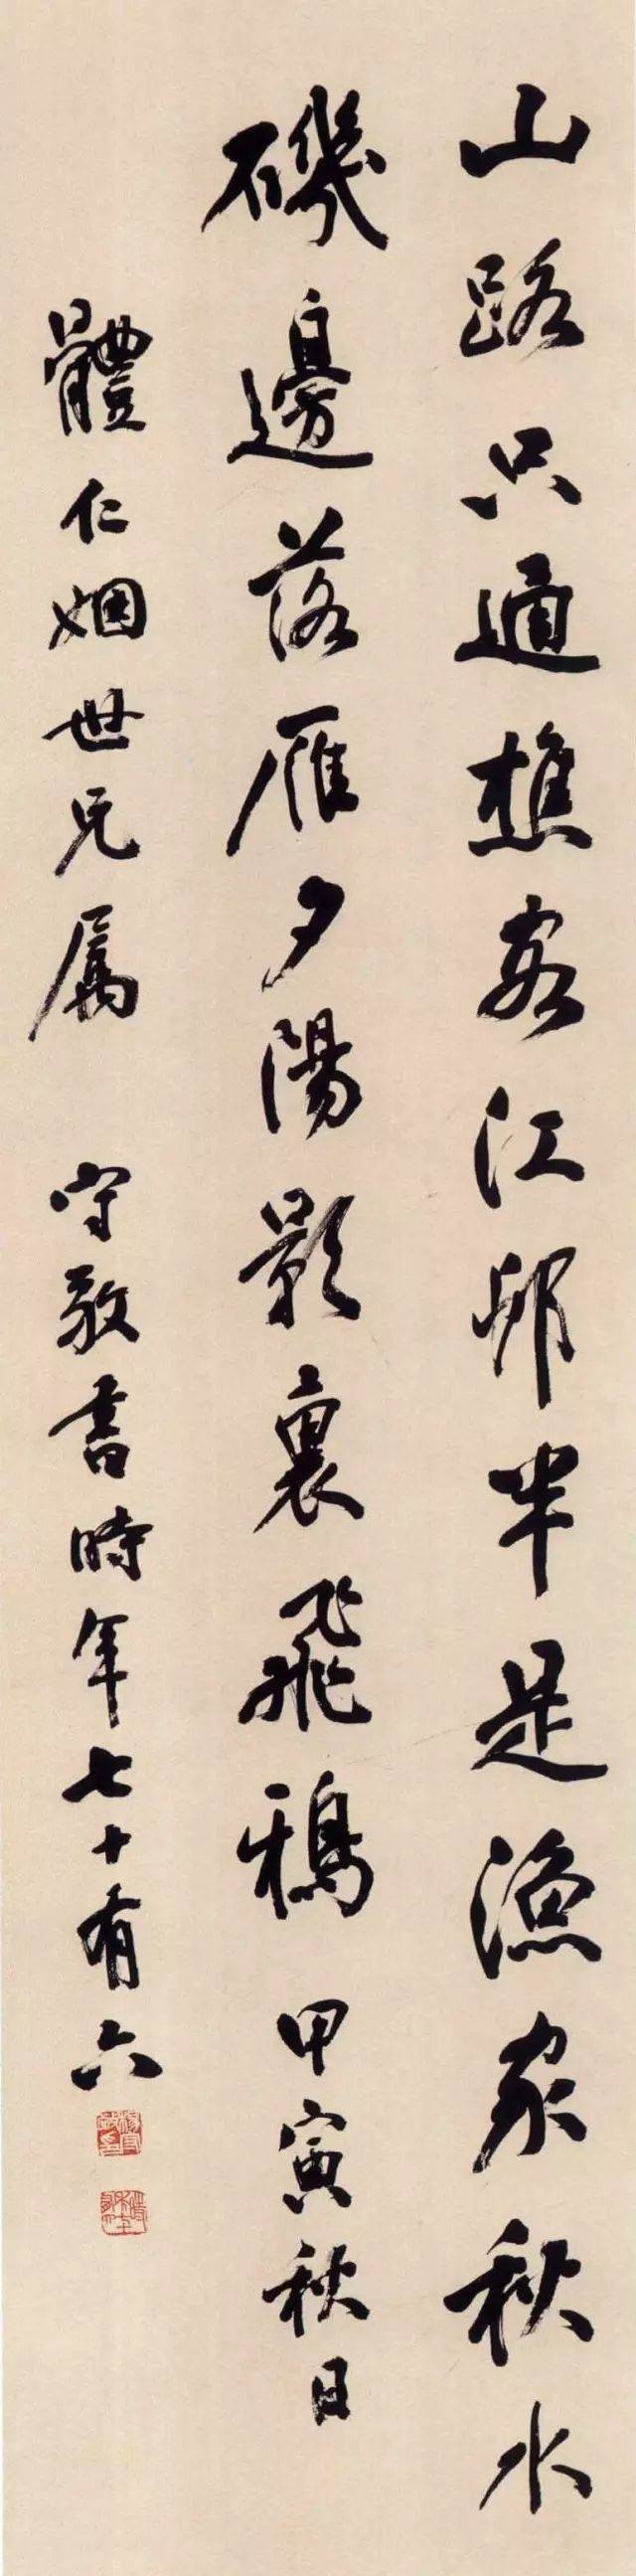 山路只通樵客江邨半是漁家秋水
磯邊落雁夕陽影裏飛鴉 甲寅秋日
體仁姻世兄属 守敬書時年七十有六